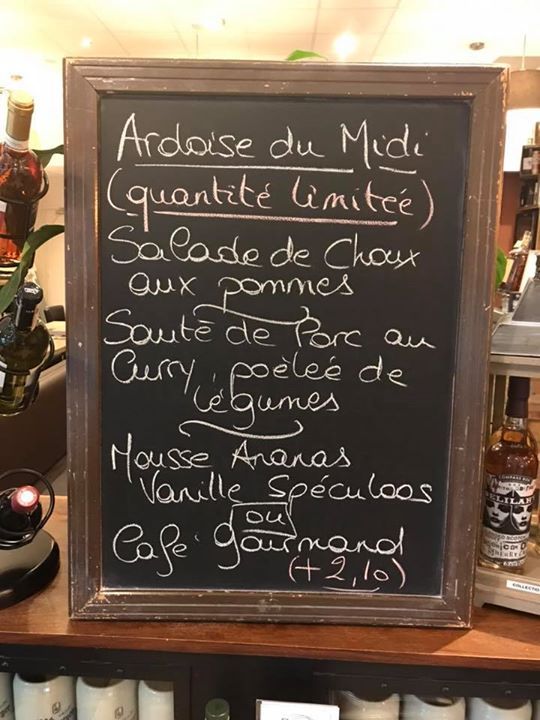 Ardoise du Midi
(quantité limitée)
Salade de Choux
aux pommes
Sauté de Porc au
Curry, poêleé de
légumes
Mousse Ananas
Vanille Spéculoos
ou
Café gourmand
(+2,10)
DELILAH
COLLECTION